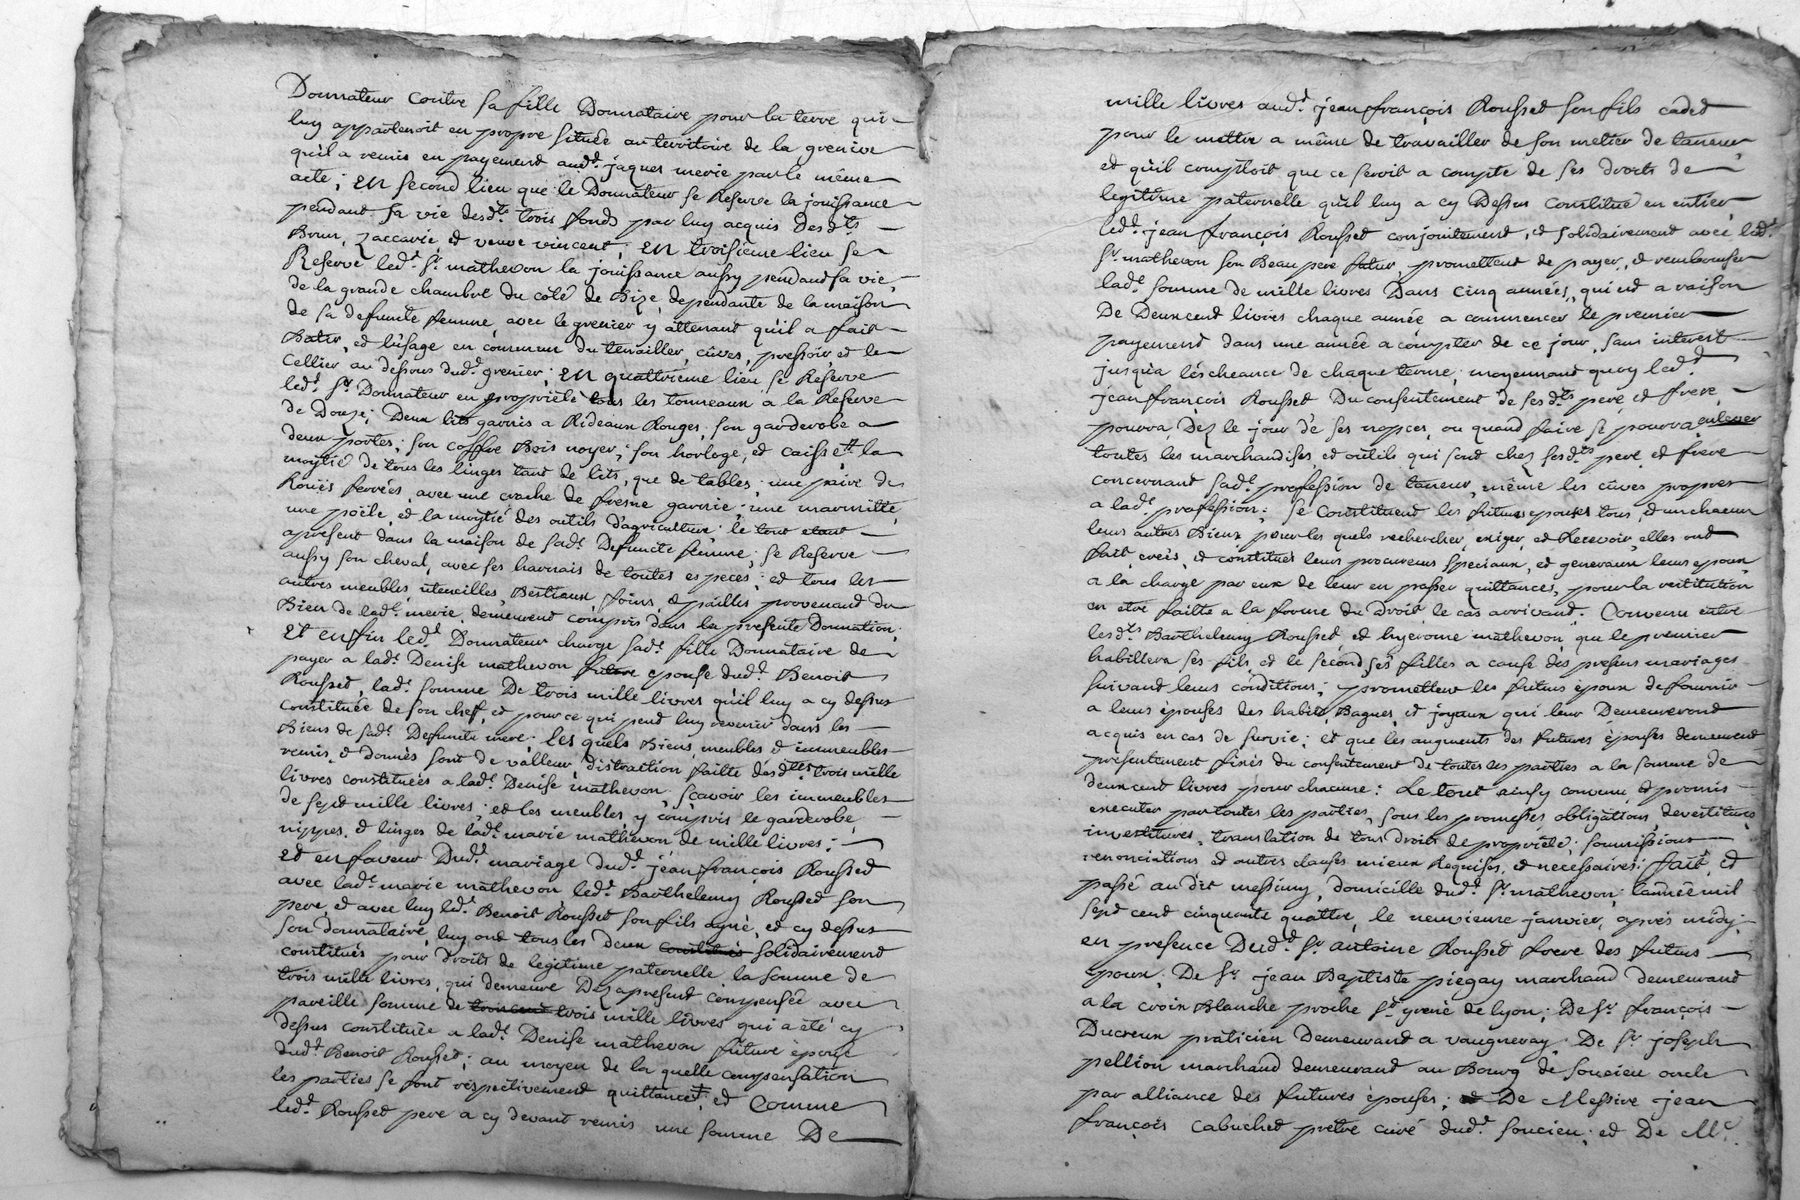 Donnateur contre sa fille Donnataire pour la terre qui
luy appartenoit en propre située au territoire de la grenive
qu'il a remis en payement aud.t jaques merie par le même
acte; en second lieu que le Donnateur se Reserve la jouissance
pendant sa vie desd.ts trois fonds par luy acquis desd.ts
Brun, Zaccarie, et veuve vincent; en troisième lieu se
Reserve led.t S.r mathevon la jouissance aussy pendant sa vie,
de la grande chambre du côté de Bize, dependante de la maison
de sa defuncte femme, avec le grenier y attenant qu'il a fait
Batir, et l'usage en commun du tenailler, cûves, pressoir et le
Cellier au dessous dud.t grenier; en quattrieme lieu se Reserve
led.t S.r Donnateur en propriété tous les tonneaux a la Reserve
de Douze; Deux lits garnis a Rideaux Rouges, son garderobe a
deux portes; son coffre Bois noyer; son horloge, et caisse, la
moytié de tous les linges tant de lits, que de tables; une paire de
Rouës ferrées, avec une crache de fresne garnie; une marmitte,
une poële, et la moytié des outils d'agriculture; le tout etant
apresent dans la maison de sad.te Defuncte femme; se Reserve
aussy son cheval, avec ses harnais de toutes especes; et tous les
autres meubles, utencilles, Bestiaux, foins, et pailles provenant du
Bien de lad.te merie, demeurent compris dans la presente Donnation;
Et enfin led.t Donnateur charge sad.te fille Donnataire de
payer a lad.te Denise mathevon future epouse dud.t Benoit
Rousset, lad.te somme De trois mille livres qu'il luy a cy dessus
constituée de son chef, et pour ce qui peut luy revenir dans les
Biens de sad.te Defuncte mere; les quels Biens meubles et immeubles
remis, et donnés sont de valleur, distraction faitte desd.tes trois mille
livres constituées a lad.te Denise mathevon, sçavoir les immeubles
de sept mille livres; et les meubles, y compris le garderobe,
nippes, et linges de lad.te marie mathevon de mille livres;
Et en faveur Dud.t mariage dud.t jean françois Rousset
avec lad.te marie mathevon, led.t Barthelemy Rousset son
pere, et avec luy led.t Benoit Rousset son fils ayné, et cy dessus
son donnataire, luy ont tous les deux constitués solidairement
constitués pour droits de legitime paternelle la somme de
trois mille livres, qui demeure Dezapresent compensée avec
pareille somme de trois cent trois mille livres qui a été cy
dessus constituée a lad.te Denise mathevon future épouse
dud.t Benoit Rousset; au moyen de la quelle compensation
les parties se sont respectivement quittancé; et Comme
led.t Rousset pere a cy devant remis une somme De
mille livres aud.t jean françois Rousset son fils cadet
pour le mettre a même de travailler de son metier de tanneur,
et qu'il comptoit que ce seroit a compte de ses droits de
legitime paternelle qu'il luy a cy Dessus Constitué en entier,
led.t jean françois Rousset conjointement, et solidairement avec led.t
S.r mathevon son Beau pere futur, promettent de payer, et rembourser
lad.te somme de mille livres Dans cinq années, qui est a raison
De Deux cent livres chaque année a commencer le premier
payement dans une année a compter de ce jour, sans interest
jusqu'a léscheance de chaque terme; moyennant quoy led.t
jean françois Rousset Du consentement de sesd.ts pere, et frere,
pourra Dez le jour de ses nopces, ou quand faire se pourra enlever
toutes les marchandises, et outils qui sont chez sesd.ts pere, et frere
concernant sad.te profession de tanneur, même les cûves propres
a lad.te profession; se Constituent les futurs epoux tous, et un chacun
leurs autres Biens pour les quels rechercher, exiger, et Recevoir, elles ont
fait, créés, et constitués leurs procureurs speciaux, et generaux leurs epoux,
a la charge par eux de leur en passer quittances, pour la restitution
en etre faitte a la forme du Droit le cas arrivant. Convenu entre
lesd.ts Barthelemy Rousset et hyerome mathevon, que le premier
habillera ses fils, et le second ses filles a cause des presens mariages
suivant leurs conditions; promettent les futurs époux de fournir
a leurs épouses des habits, Bagues, et joyaux qui leur Demeureront
acquis en cas de survie; et que les augments des futures épouses demeurent
presentement fixés du consentement de toutes les parties a la somme de
deux cent livres pour chacune: Le tout ainsy convenu, et promis
executer par toutes les parties, sous les promesses, obligations, devestitures,
investitures, translation de tous droits de propriété; soumissions
renonciations et autres clauses mieux Requises, et necessaires: fait, et
passé audit messimy, domicille dud.t S.r mathevon, l'année mil
sept cent cinquante quattre, le neuvieme janvier, après midy;
en presence Dud.t S.r antoine Rousset frere des futurs
époux; De S.r jean Baptiste piegay marchand demeurant
a la croix Blanche proche S.t yrené de lyon; De S.r françois
Ducreux praticien Demeurant a vaugneray. De S.r joseph
pellion marchand demeurant au Bourg de soucieu oncle
par alliance des futures épouses; et De Messire jean
françois Cabuchet prêtre curé dud.t soucieu; et De M.e